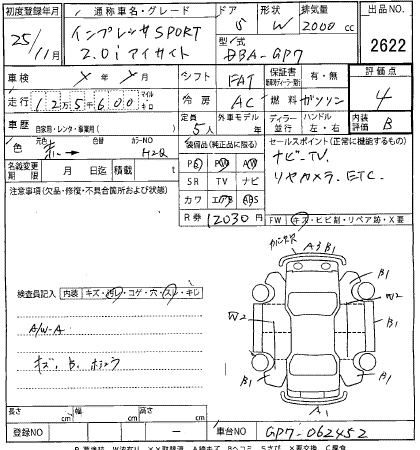 初度登録年月 通称車名・グレード ドア 形状 排気量 出品NO
25/11月 インプレッサSPORT 2.0i アイサイト 5 W 2000 cc
型式 DBA-GP7 2622
車検 メ 年 メ 月 シフト FAT 保証書 有・無 評価点
走行 12万5千600 マイル キロ 冷房 AC 燃料 ガソリン 4
車歴 自家用・レンタ・事業用( ) 定員 5人 外車モデル 年 ディーラー 並行 ハンドル 左・右 内装評価 B
色 元色 赤 色替 カラーNO H2Q 装備品(純正品に限る) セールスポイント(正常に機能するもの)
PS PW AW ナビ・TV.
名義変更期限 月 日迄 積載量 t SR TV ナビ リヤカメラ・ETC.
注意事項(欠品・修復・不具合箇所および状態) カワ エアB ABS
R券 12030円 FW キズ・ヒビ割・リペア跡・X要
A3 B1
検査員記入 内装 キズ・汚レ・コゲ・穴・スレ・キレ
B1 B1
W2 W2
A/W-A
キズ、B、
B1 B1
A1
長さ cm 幅 cm 高さ cm
登録NO — 車台NO GP7-062452